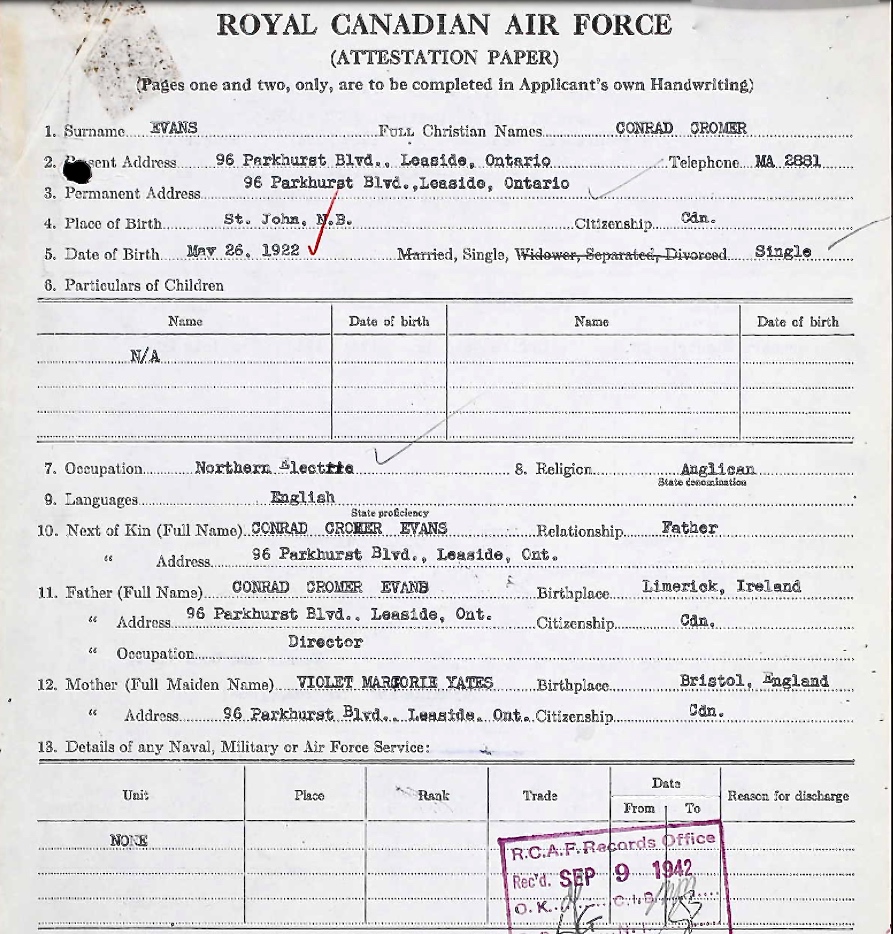 ROYAL CANADIAN AIR FORCE
(ATTESTATION PAPER)
(Pages one and two, only, are to be completed in Applicant's own Handwriting)
1. Surname EVANS FULL Christian Names CONRAD CROMER
2. Present Address 96 Parkhurst Blvd., Leaside, Ontario Telephone MA 2881
3. Permanent Address 96 Parkhurst Blvd., Leaside, Ontario
4. Place of Birth St. John, N.B. Citizenship Cdn.
5. Date of Birth May 26, 1922 Married, Single, Widower, Separated, Divorced Single
6. Particulars of Children
Name Date of birth Name Date of birth
N/A
7. Occupation Northern Electric 8. Religion Anglican
State denomination
9. Languages English
State proficiency
10. Next of Kin (Full Name) CONRAD CROMER EVANS Relationship Father
" Address 96 Parkhurst Blvd., Leaside, Ont.
11. Father (Full Name) CONRAD CROMER EVANS Birthplace Limerick, Ireland
" Address 96 Parkhurst Blvd., Leaside, Ont. Citizenship Cdn.
" Occupation Director
12. Mother (Full Maiden Name) VIOLET MARJORIE YATES Birthplace Bristol, England
" Address 96 Parkhurst Blvd., Leaside, Ont. Citizenship Cdn.
13. Details of any Naval, Military or Air Force Service:
Unit Place Rank Trade Date Reason for discharge
From To
NONE
R.C.A.F. Records Office
Rec'd. SEP 9 1942
O.K.